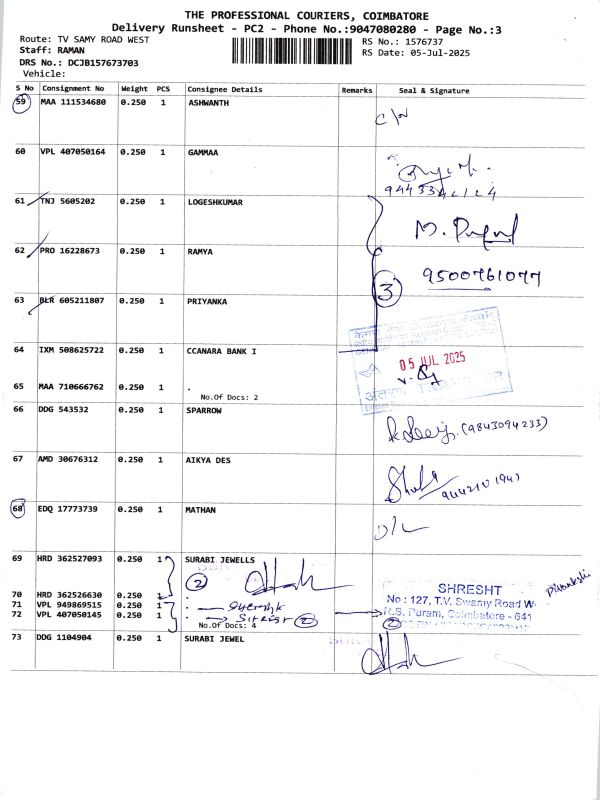 THE PROFESSIONAL COURIERS, COIMBATORE
Delivery Runsheet - PC2 - Phone No.:9047080280 - Page No.:3
Route: TV SAMY ROAD WEST
RS No.: 1576737
Staff: RAMAN
RS Date: 05-Jul-2025
DRS No.: DCJB157673703
Vehicle:
S No Consignment No Weight PCS Consignee Details Remarks Seal & Signature
59 MAA 111534680 0.250 1 ASHWANTH
60 VPL 407050164 0.250 1 GAMMAA
61 TNJ 5605202 0.250 1 LOGESHKUMAR
62 PRO 16228673 0.250 1 RAMYA
9500761077
3
63 BLR 605211807 0.250 1 PRIYANKA
64 IXM 508625722 0.250 1 CCANARA BANK I
05 JUL 2025
65 MAA 710666762 0.250 1 .
No.Of Docs: 2
66 DDG 543532 0.250 1 SPARROW
(9843094233)
67 AMD 30676312 0.250 1 AIKYA DES
68 EDQ 17773739 0.250 1 MATHAN
69 HRD 362527093 0.250 1 SURABI JEWELLS
2
70 HRD 362526630 0.250 1 .
71 VPL 949869515 0.250 1 .
72 VPL 407050145 0.250 1 .
2
No.Of Docs: 4
SHRESHT
No : 127, T.V. Swamy Road W
R.S. Puram, Coimbatore - 641
2
73 DDG 1104904 0.250 1 SURABI JEWEL